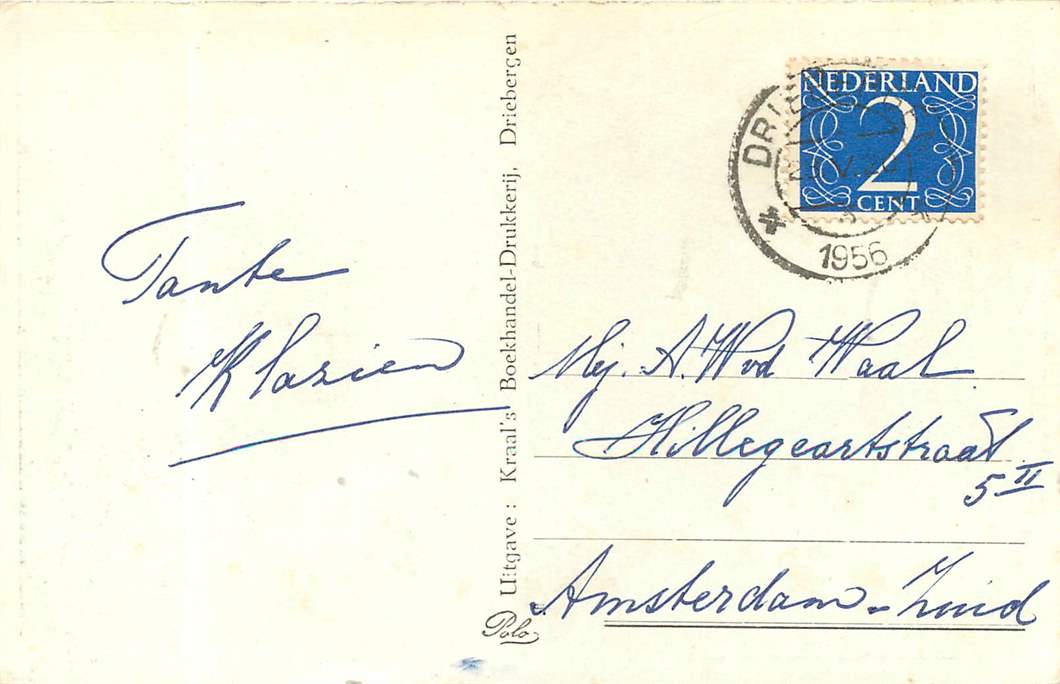 Tante
Klasien
Uitgave: Kraal's Boekhandel-Drukkerij, Driebergen
Polo
NEDERLAND
2
CENT
1956
Mej. A. Wvd Waal
Hillegeartstraat
5 II
Amsterdam-Zuid